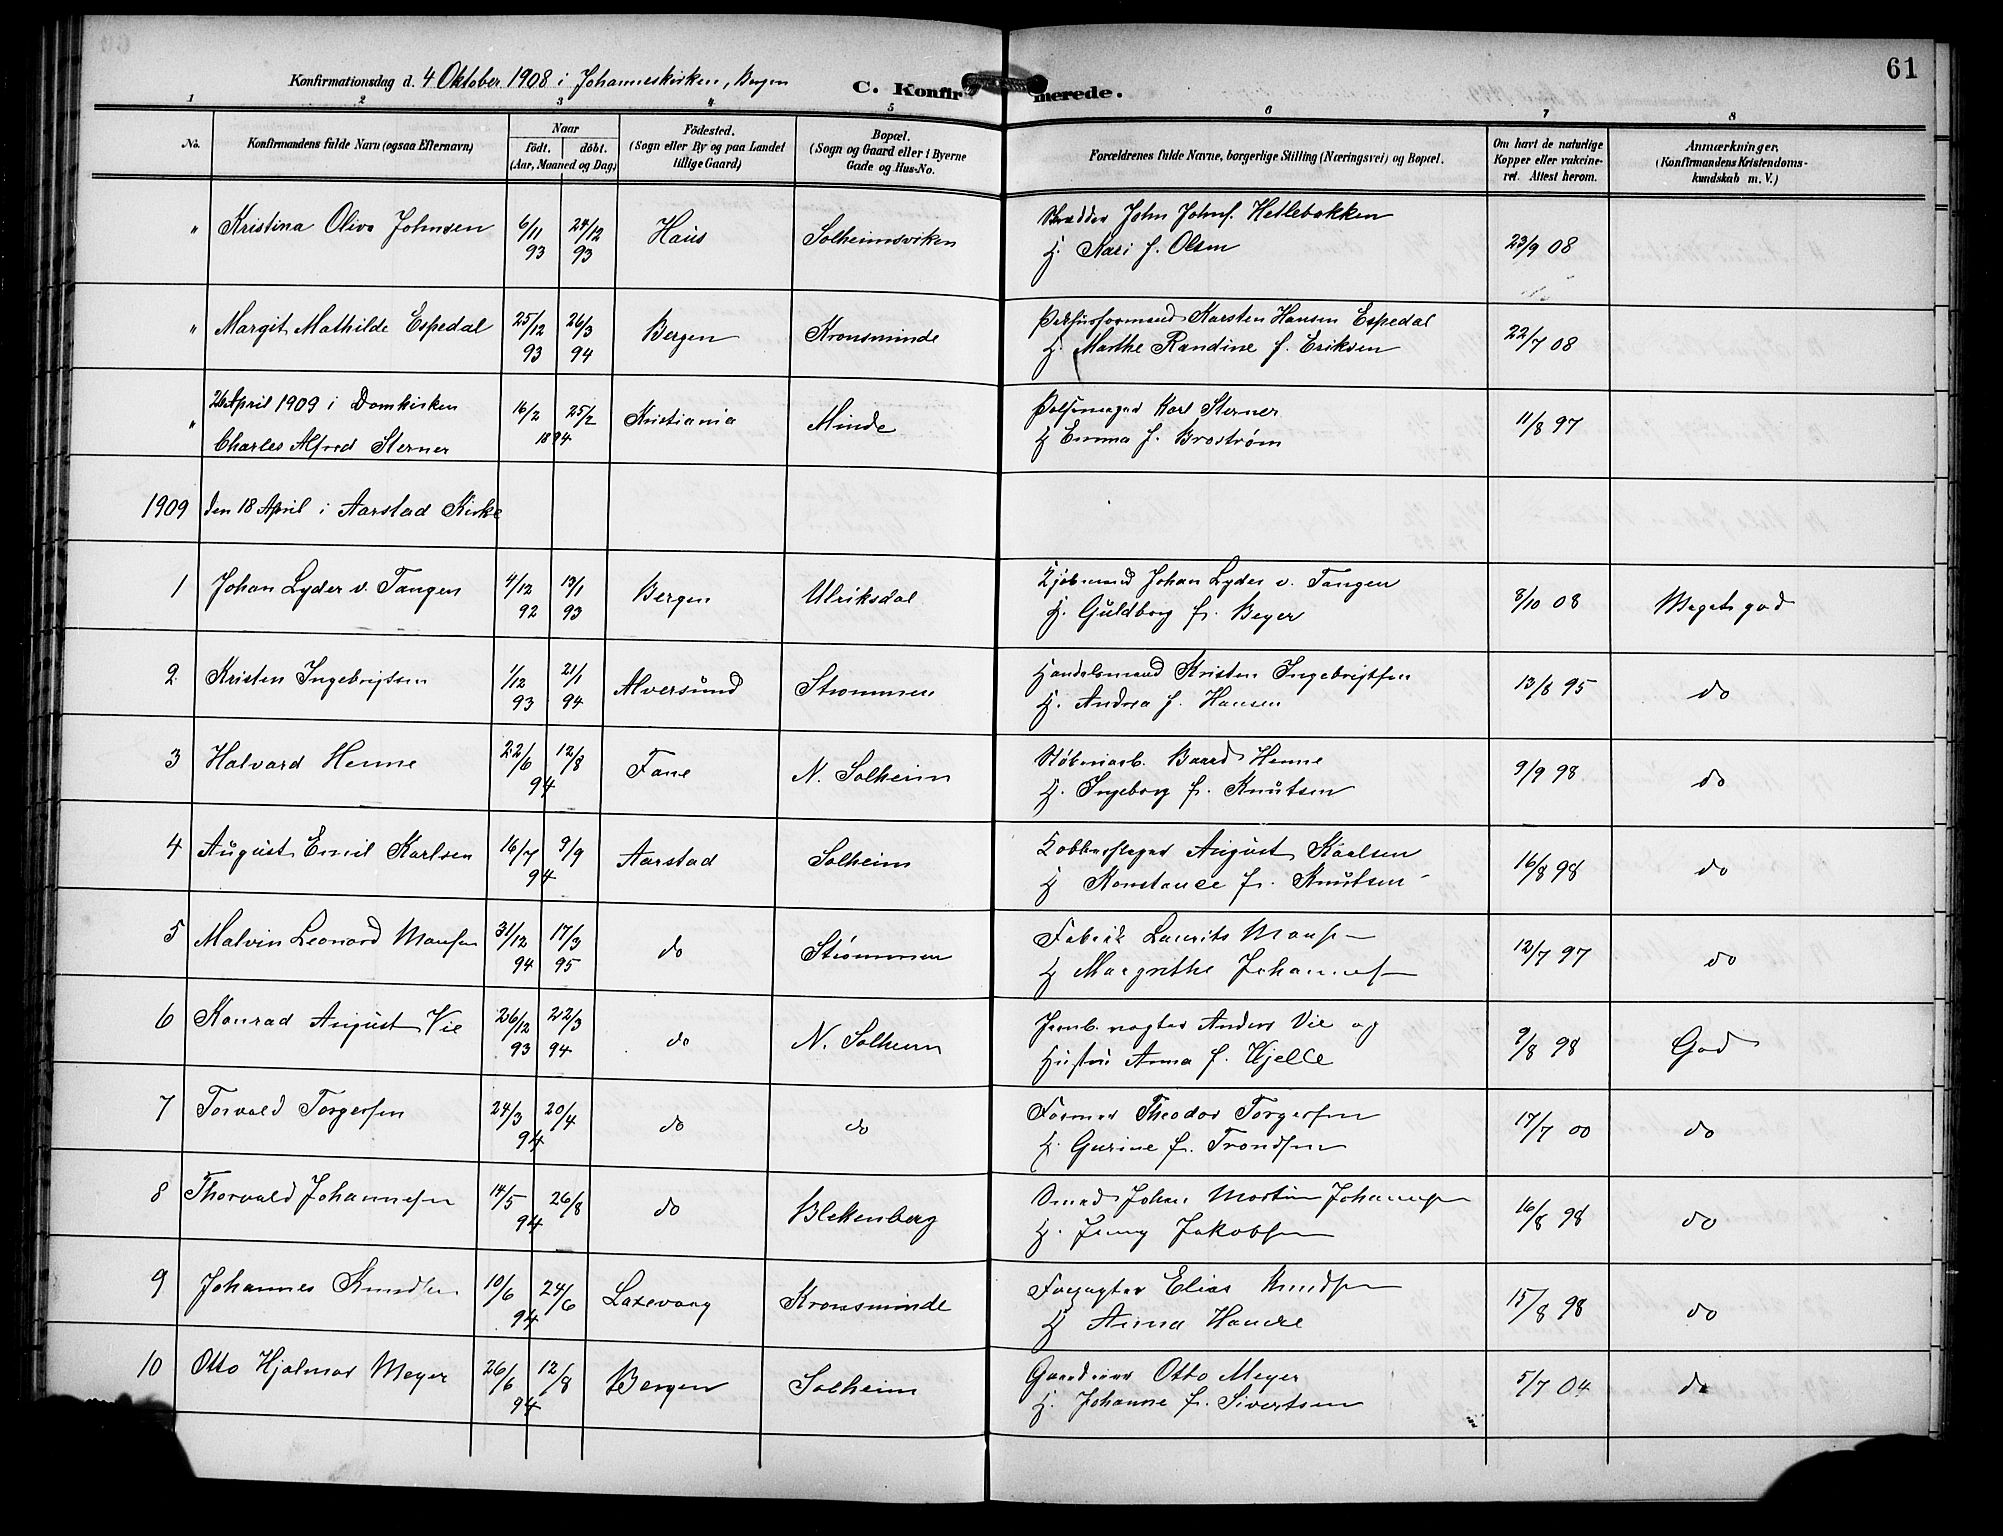 61
Konfirmationsdag d. 4 Oktober 1908 i Johanneskirken, Bergen
C. Konfirmerede.
1 2 3 4 5 6 7 8
No.
Konfirmandens fulde Navn (ogsaa Efternavn)
Naar
födt. döbt.
(Aar, Maaned og Dag)
Födested.
(Sogn eller By og paa Landet
tillige Gaard)
Bopæl.
(Sogn og Gaard eller i Byerne
Gade og Hus-No.
Forældrenes fulde Navne, borgerlige Stilling (Næringsvei) og Bopæl.
Om havt de naturlige
Kopper eller vakcine-
ret. Attest herom.
Anmærkninger.
(Konfirmandens Kristendoms-
kundskab m. V.)
" Kristina Oliva Johnsen 6/11 93 24/12 93 Haus Solheimsviken John Johns. Hellebakken 23/9 08
H. Kari f. Olsen
" Margit Mathilde Espedal 25/12 93 26/3 94 Bergen Kronsminde Karsten Hansen Espedal 22/7 08
H. Marthe Randine f. Eriksen
26 April 1909 i Domkirken
" Charles Alfred Sterner 16/2 25/2 1894 Kristiania Minde Pølsemager Karl Sterner 11/8 97
H Emma f. Brostrøm
1909 den 18 April i Aarstad Kirke
1 Johan Lyder v. Tangen 4/12 92 13/1 93 Bergen Ulriksdal Kjøbmand Johan Lyder v. Tangen 8/10 08 Meget god
H. Guldborg f. Beyer
2 Kristen Ingebrigtsen 1/12 93 21/1 94 Alversund Strømmen Handelsmand Kristen Ingebrigtsen 13/8 95 do
H. Andrea f. Hansen
3 Halvard Henne 22/6 12/8 94 Fane N. Solheim Støberiarb. Baard Henne 9/9 98 do
H. Ingeborg f. Knutsen
4 August Emil Karlsen 16/7 9/9 94 Aarstad Solheim Kobberslager August Karlsen 16/8 98 do
H Konstance f. Knutsen
5 Malvin Leonard Monsen 31/12 94 17/3 95 do Strømmen Laurits Monsen 12/7 97 do
H Margrethe Johannesen
6 Konrad August Vie 26/12 93 22/3 94 do N. Solheim Jernb. vogter Anders Vie og 9/8 98 God
Hustru Anna f. Hjelle
7 Torvald Torgersen 24/3 20/4 94 do do Former Theodor Torgersen 17/7 00 do
H. Gurine f. Trondsen
8 Thorvald Johannesen 14/5 26/8 94 do Blekenberg Smed Johan Martin Johannesen 16/8 98 do
H. Jenny Jakobsen
9 Johannes Knudsen 10/6 24/6 94 Laxevaag Kronsminde Elias Knudsen 15/8 98 do
H Anna
10 Otto Hjalmar Meyer 26/6 12/8 94 Bergen Solheim Otto Meyer 5/7 04 do
H. Johanne f. Sivertsen